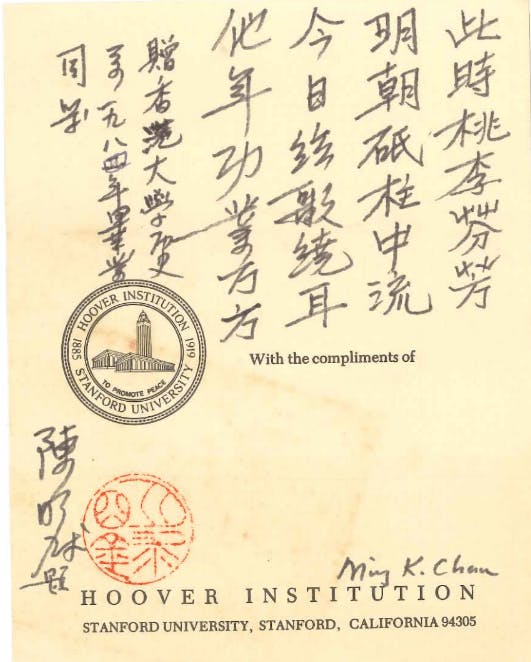 此時桃李芬芳
明朝砥柱中流
今日絃歌繞耳
他年功業万方
贈香港大學历史
系一九八四年畢業
同學
HOOVER INSTITUTION
1885 1919
TO PROMOTE PEACE
STANFORD UNIVERSITY
With the compliments of
陳明銶題
Ming K. Chan
HOOVER INSTITUTION
STANFORD UNIVERSITY, STANFORD, CALIFORNIA 94305